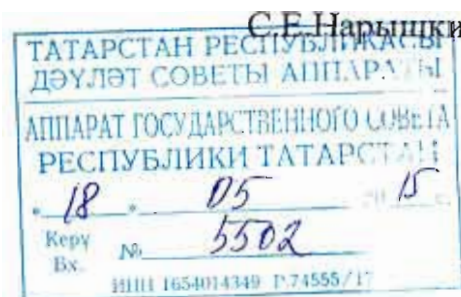 С.Е.Нарышки
ТАТАРСТАН РЕСПУБЛИКАСЫ
ДӘҮЛӘТ СОВЕТЫ АППАРАТЫ
АППАРАТ ГОСУДАРСТВЕННОГО СОВЕТА
РЕСПУБЛИКИ ТАТАРСТАН
« 18 » 05 20 15 г.
Керү
Вх. № 5502
ИНН 1654014349 Р.74555/17